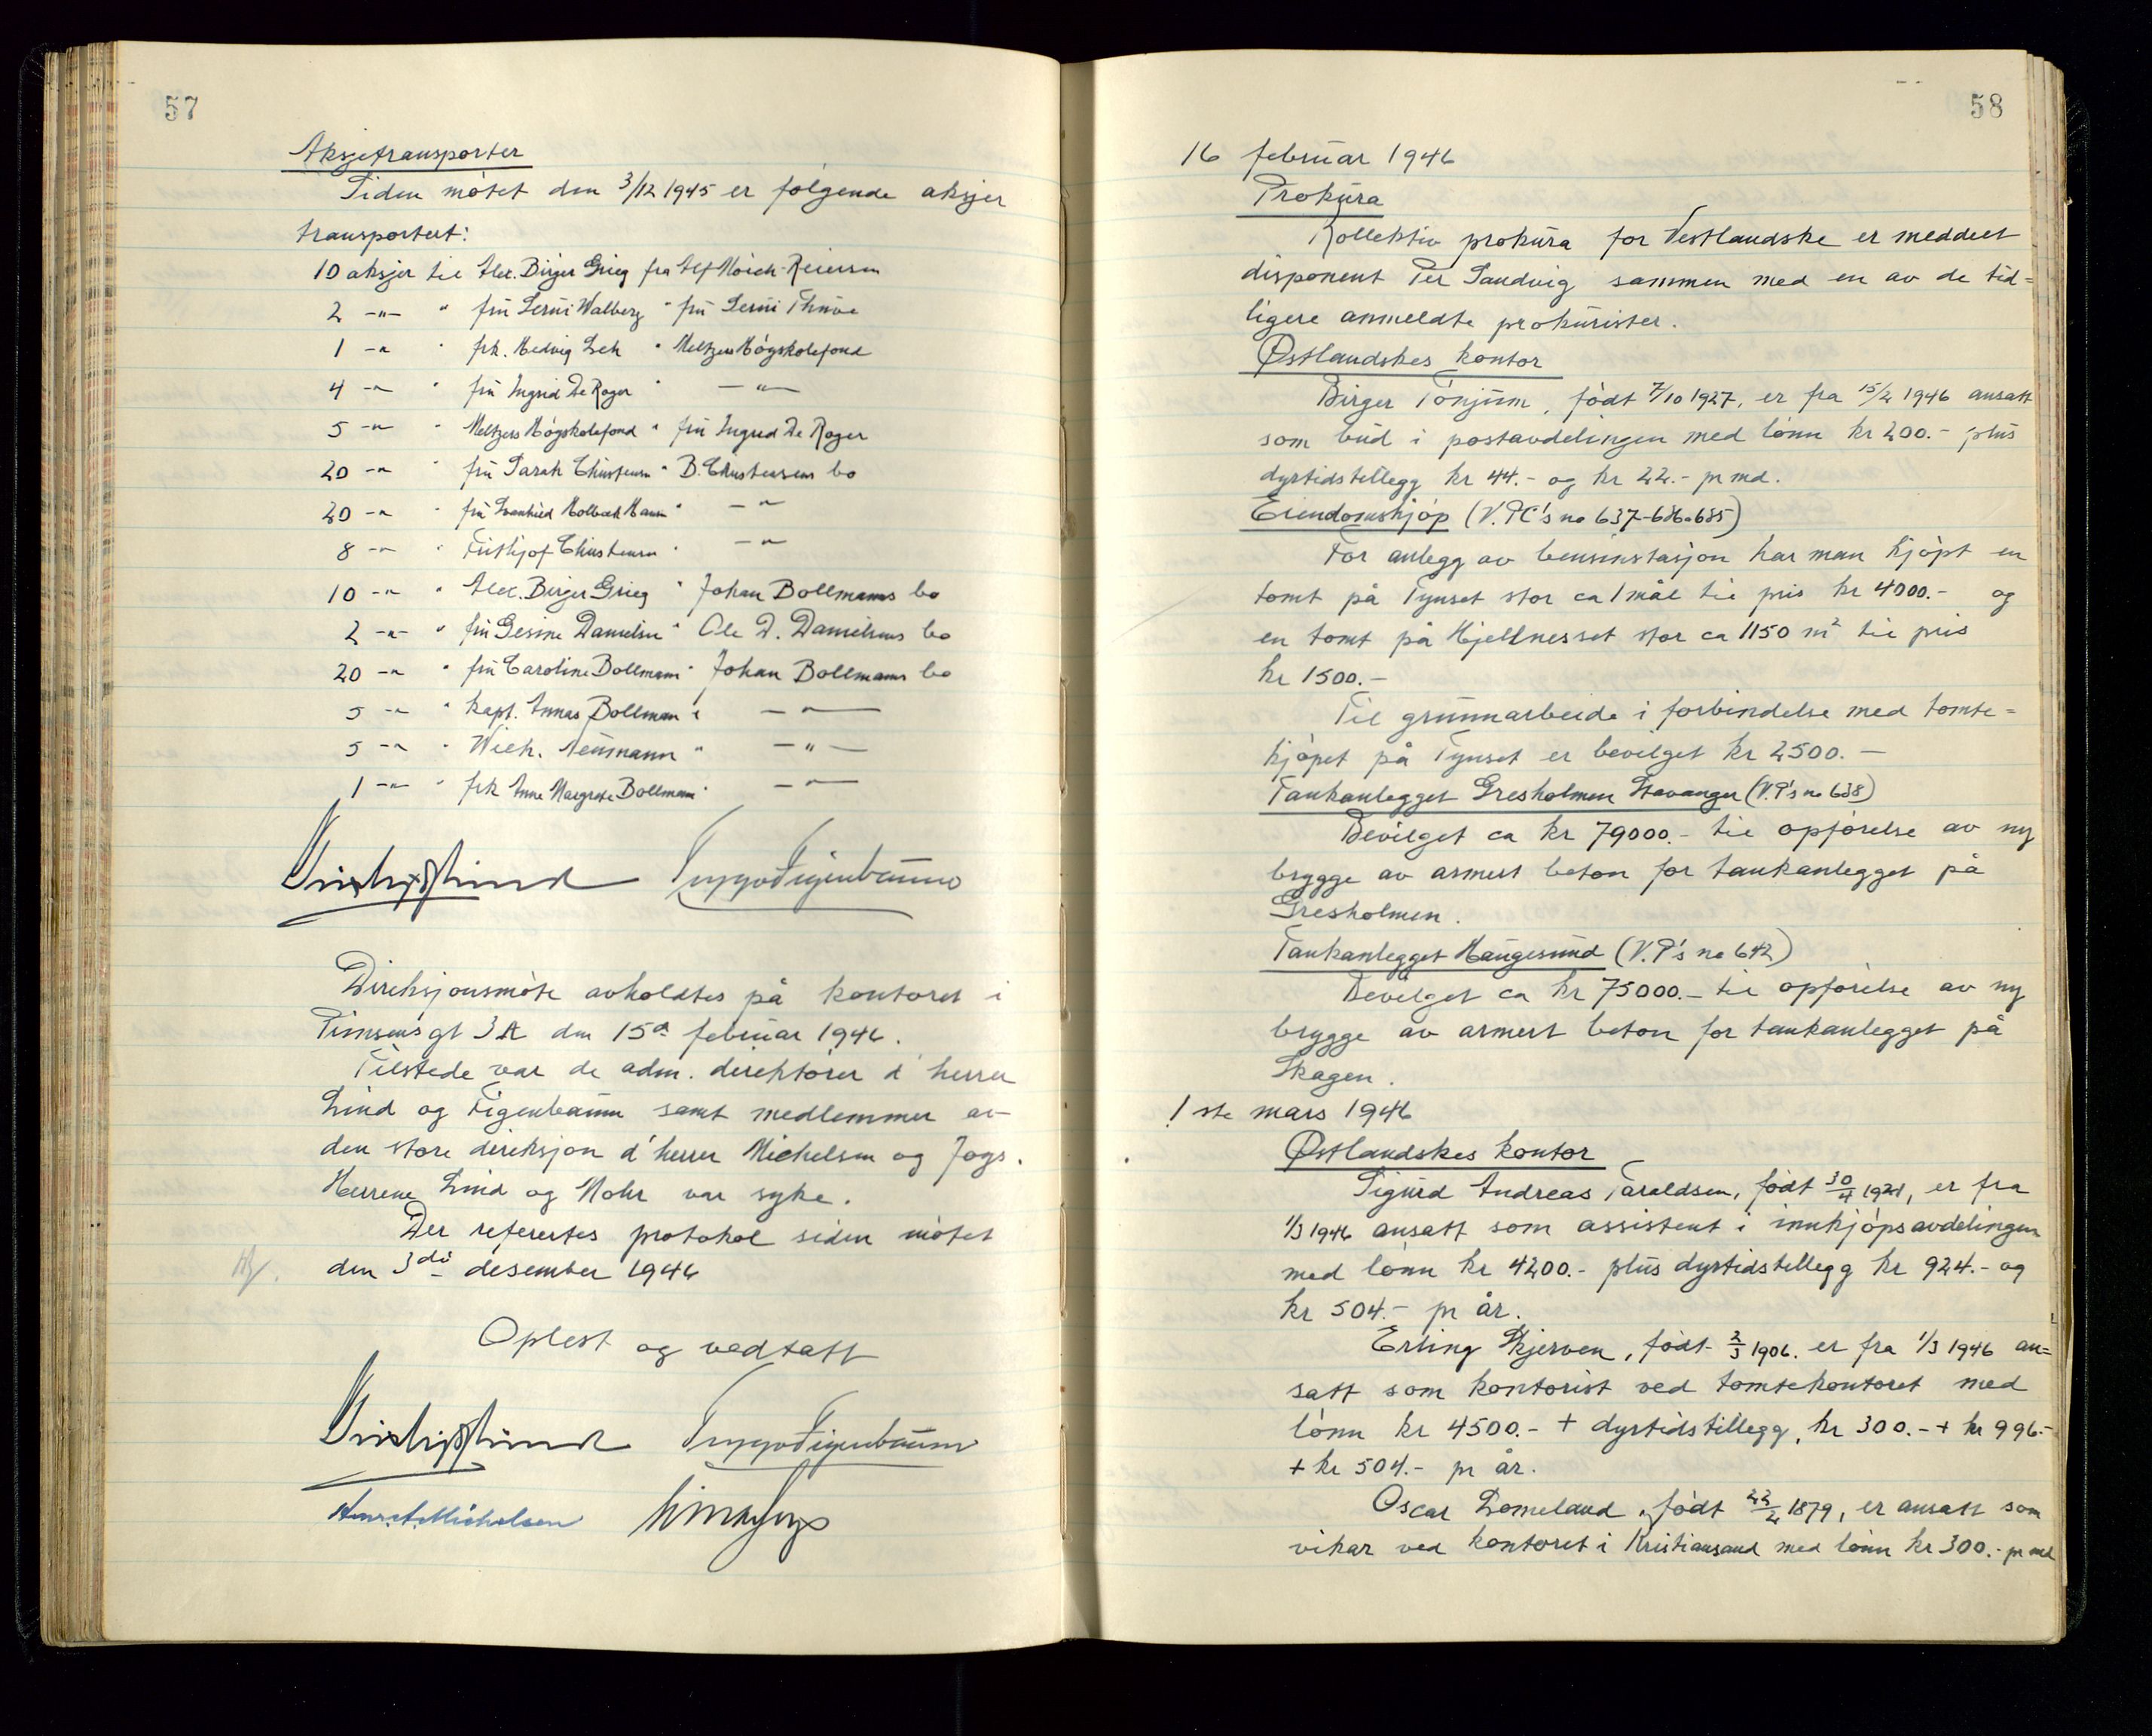 57
Aksjetransporter
Siden møtet den 3/12 1945 er følgende aksjer
transportert:
10 aksjer til Alex. Birger Grieg fra Alf Mörch-Reiersen
2 -"- " fru Walberg " fru
1 -"- " frk. Hedvig " Meltzers Høgskolefond
4 -"- " fru Ingrid De Roger " -"-
5 -"- " Meltzers Høgskolefond " fru Ingrid De Roger
20 -"- " fru Sarah Christensen " B. Christensens bo
20 -"- " fru Holbæk Hansen " -"-
8 -"- " Frithjof Christensen " -"-
10 -"- " Alex. Birger Grieg " Johan Bollmanns bo
2 -"- " fru Gesine Danielsen " Ole D. Danielsens bo
20 -"- " fru Caroline Bollmann " Johan Bollmanns bo
5 -"- " kapt. Bollmann " -"-
5 -"- " Wilh. Neumann " -"-
1 -"- " frk Anne Margrete Bollmann " -"-
Trygve Figenbaum
Direksjonsmøte avholdtes på kontoret i
gt 3A den 15de februar 1946.
Tilstede var de adm. direktører d'herrer
Lind og Figenbaum samt medlemmer av
den store direksjon d'herrer Michelsen og Joys.
Herrene Lind og Mohr var syke.
Der refertes protokol siden møtet
den 3dje desember 1946
Oplest og vedtatt
Trygve Figenbaum
Michelsen
58
16 februar 1946
Prokura
Kollektiv prokura for Vestlandske er meddelt
disponent Per Sandvig sammen med en av de tid=
ligere anmeldte prokurister.
Østlandskes kontor
Birger Tønjum, født 7/10 1927, er fra 15/2 1946 ansatt
som bud i postavdelingen med lønn kr 200.- plus
dyrtidstillegg kr 44.- og kr 22.- pr md.
Eiendomskjøp (V.PC's no 637-686-685)
For anlegg av bensinstasjon har man kjøpt en
tomt på Tynset stor ca 1 mål til pris kr 4000.- og
en tomt på Kjellnesset stor ca 1150 m² til pris
kr 1500.-
Til grunnarbeide i forbindelse med tomte=
kjøpet på Tynset er bevilget kr 2500.-
Tankanlegget Gresholmen Stavanger (V.P's no 638)
Bevilget ca kr 79000.- til opførelse av ny
brygge av armert beton for tankanlegget på
Gresholmen.
Tankanlegget Haugesund (V.P's no 642)
Bevilget ca kr 75000.- til opførelse av ny
brygge av armert beton for tankanlegget på
Skagen.
1ste mars 1946
Østlandskes kontor
Sigurd Andreas Taraldsen, født 30/4 1921, er fra
1/3 1946 ansatt som assistent i innkjøpsavdelingen
med lønn kr 4200.- plus dyrtidstillegg kr 924.- og
kr 504.- pr år.
Erling Skjerven, født 2/3 1906. er fra 1/3 1946 an=
satt som kontorist ved tomtekontoret med
lønn kr 4500.- + dyrtidstillegg, kr 300.- + kr 996.-
+ kr 504.- pr år.
Oscar Lomeland, født 22/2 1879, er ansatt som
vikar ved kontoret i Kristiansand med lønn kr 300.- pr md